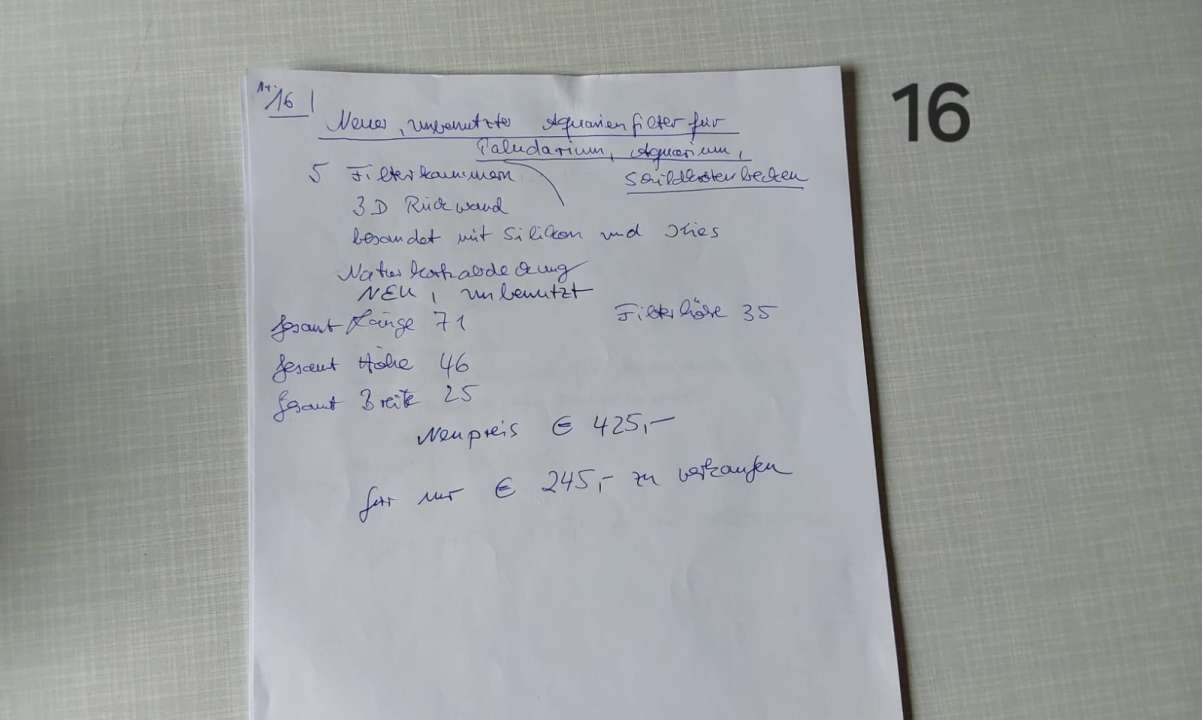 Nr. 16
16
Neuer, unbenutzter Aquarienfilter für
Paludarium, Aquarium,
Schildkrötenbecken
5 Filterkammern
3D Rückwand
besandet mit Silikon und Kies
Naturkorkabdeckung
NEU, unbenutzt
Gesamt Länge 71
Filterhöhe 35
Gesamt Höhe 46
Gesamt Breite 25
Neupreis € 425,-
für nur € 245,- zu verkaufen